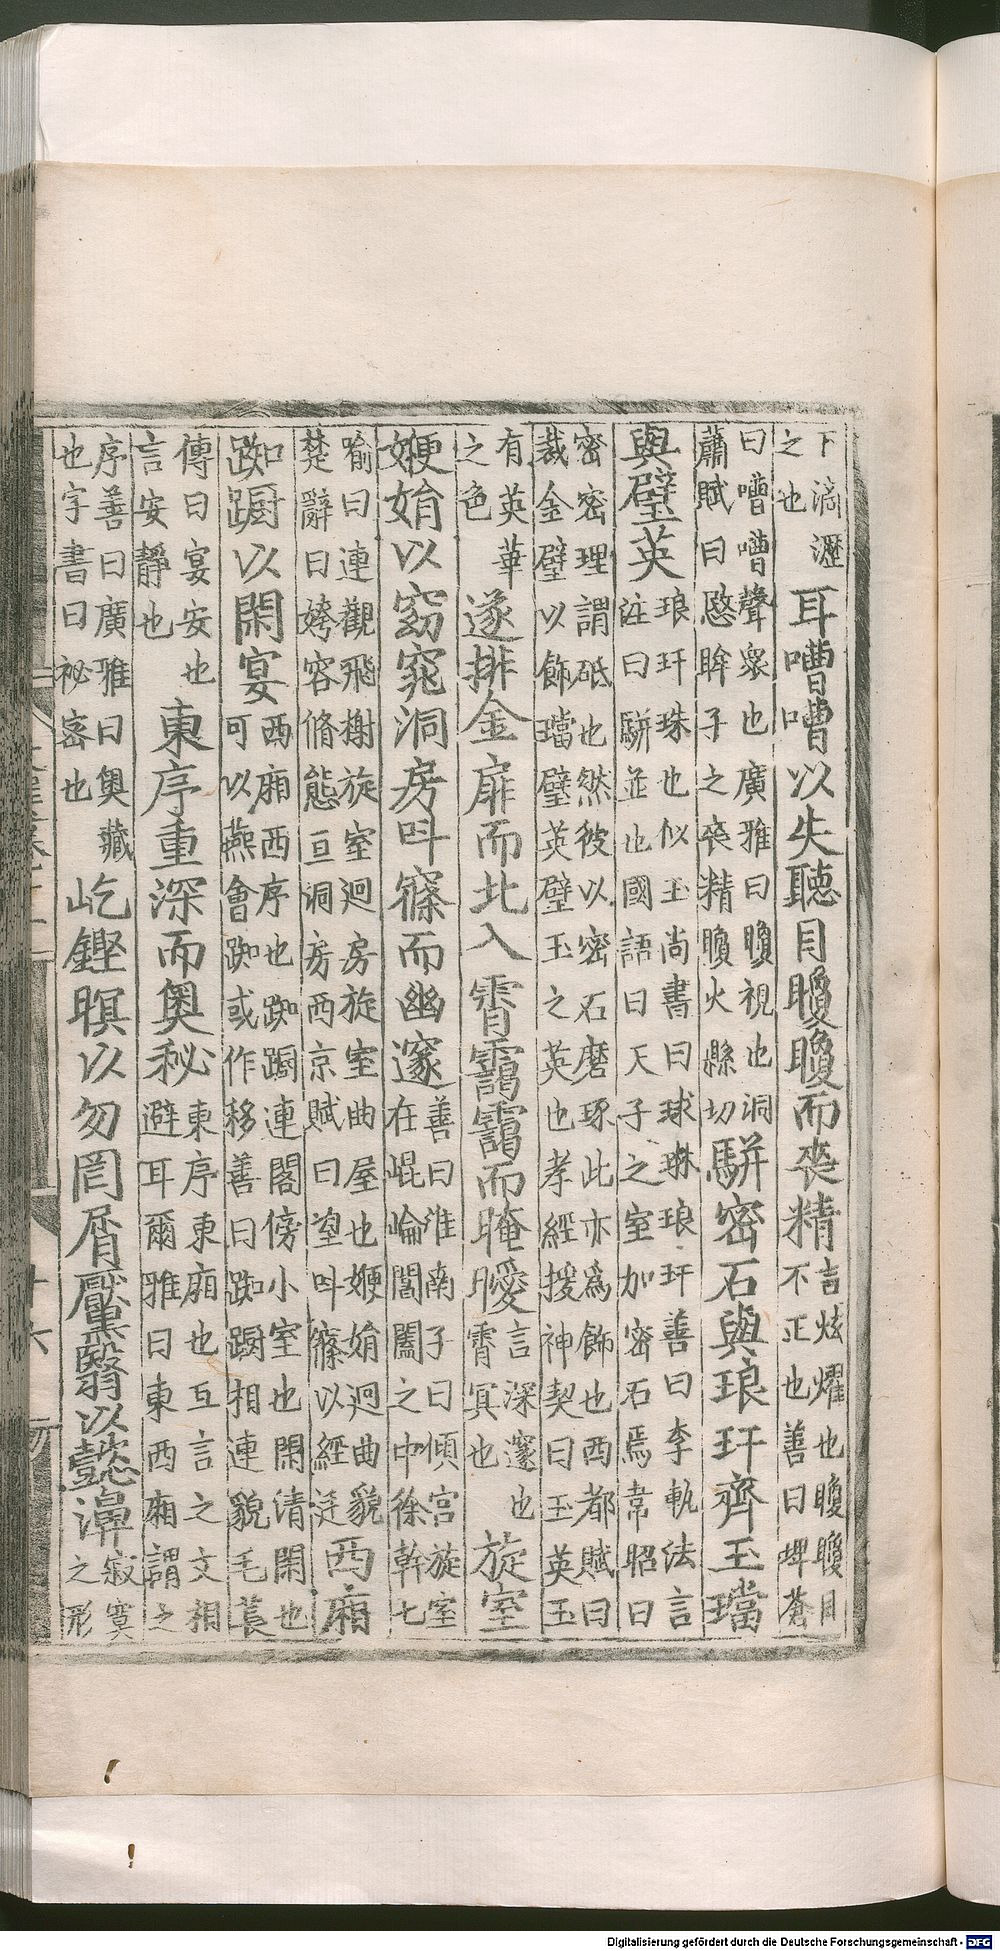 下滴瀝之也耳嘈嘈以失聽目矎矎而喪精言炫燿也矎矎目不正也善曰埤蒼
曰嘈嘈聲衆也廣雅曰矎視也洞蕭賦曰愍眸子之喪精矎火縣切駢密石與琅玕齊玉璫
與璧英琅玕珠也似玉尚書曰球琳琅玕善曰李軌法言注曰駢並也國語曰天子之室加密石焉韋昭曰
密密理謂砥也然彼以密石磨琢此亦為飾也西都賦曰裁金璧以飾璫璧英璧玉之英也孝經援神契曰玉英玉
有英華之色遂排金扉而北入霄靄靄而晻曖言深邃也霄冥也旋室
㛹娟以窈窕洞房叫窱而幽邃善曰淮南子曰傾宮旋室在崐崘閶闔之中徐幹七
喻曰連觀飛榭旋室迴房旋室曲屋也㛹娟迴曲貌楚辭曰姱容脩態亘洞房西京賦曰望叫窱以經廷西廂
踟蹰以閑宴西廂西序也踟蹰連閣傍小室也閑清閑也可以燕會踟或作移善曰踟蹰相連貌毛萇
傳曰宴安也言安靜也東序重深而奧秘東序東廂也互言之文相避耳爾雅曰東西廂謂之
序善曰廣雅曰奧藏也字書曰祕密也屹鏗瞑以勿罔屑黶翳以懿濞寂寞之形
Digitalisierung gefördert durch die Deutsche Forschungsgemeinschaft - DFG